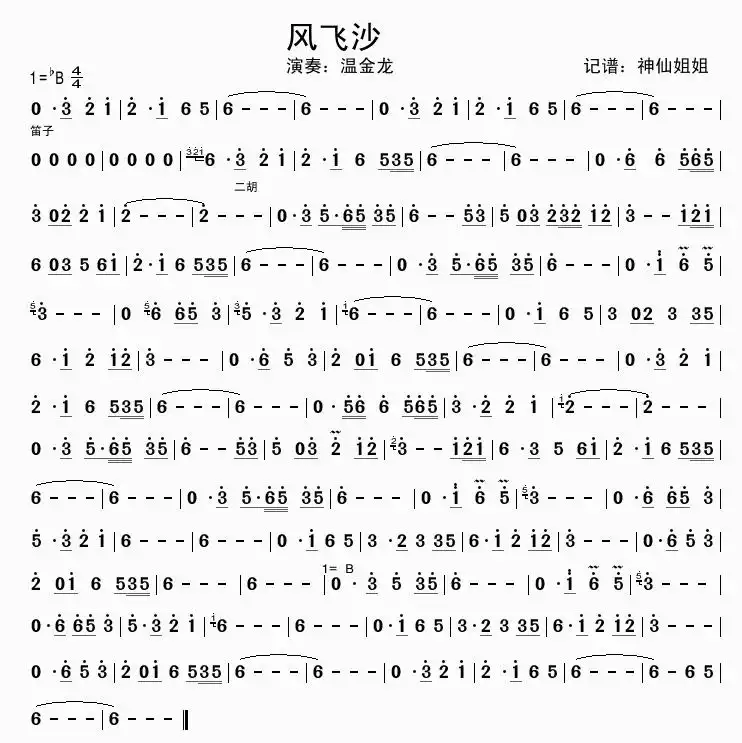 风飞沙
演奏：温金龙 记谱：神仙姐姐
1=♭B 4/4
0 ·3 2 1|2 ·1 6 5|6 - - -|6 - - -|0 ·3 2 1|2 ·1 6 5|6 - - -|6 - - -|
笛子
0 0 0 0|0 0 0 0|321 6 ·3 2 1|2 ·1 6 535|6 - - -|6 - - -|0 ·6 6 565|
二胡
3 02 2 1|2 - - -|2 - - -|0 ·3 5·65 35|6 - - 53|5 03 232 12|3 - - 121|
6 03 5 61|2·1 6 535|6 - - -|6 - - -|0 ·3 5·65 35|6 - - -|0 ·1 6 5|
5 3 - - -|0 5 6 65 3|3 5 ·3 2 1|1 6 - - -|6 - - -|0 ·1 6 5|3 02 3 35|
6 ·1 2 12|3 - - -|0 ·6 5 3|2 01 6 535|6 - - -|6 - - -|0 ·3 2 1|
2 ·1 6 535|6 - - -|6 - - -|0 ·56 6 565|3 ·2 2 1|1 2 - - -|2 - - -|
0 ·3 5·65 35|6 - - 53|5 03 2 12|2 3 - - 121|6 ·3 5 61|2 ·1 6 535|
6 - - -|6 - - -|0 ·3 5·65 35|6 - - -|0 ·1 6 5|5 3 - - -|0 ·6 65 3|
5 ·3 2 1|6 - - -|6 - - -|0 ·1 6 5|3 ·2 3 35|6·1 2 12|3 - - -|0·6 5 3|
2 01 6 535|6 - - -|6 - - -|1= B|0 ·3 5 35|6 - - -|0 ·1 6 5|5 3 - - -|
0·6 65 3|5·3 2 1|1 6 - - -|6 - - -|0·1 6 5|3·2 3 35|6·1 2 12|3 - - -|
0 ·6 5 3|2 01 6 535|6 - - -|6 - - -|0 ·3 2 1|2 ·1 6 5|6 - - -|6 - 6 5|
6 - - -|6 - - -‖